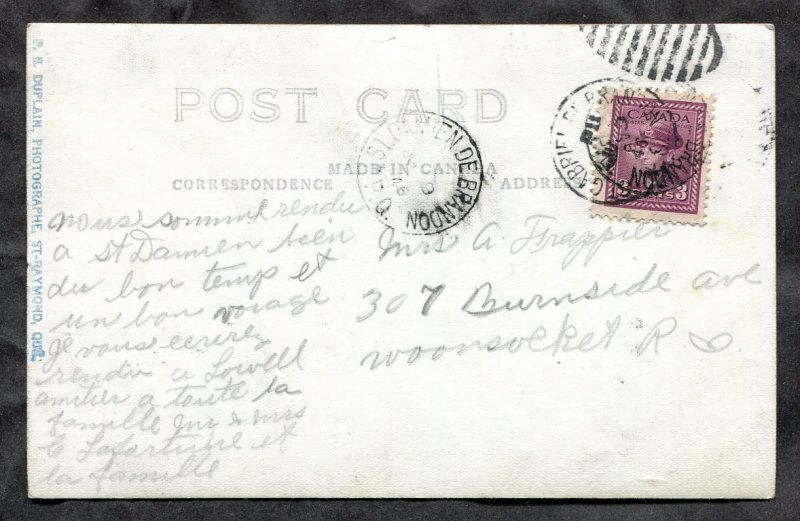 POST CARD
MADE IN CANADA
CORRESPONDENCE ADDRESS
P. E. DUPLAIN, PHOTOGRAPHE, ST-RAYMOND, QUÉ.
ST. DAMIEN DE BRANDON
GABRIEL DE BRANDON
CANADA
3 CENTS 3
nous somme rendu
a st Damien bien
du bon temp et
un bon voiage
Je vous ecrirez
rendu a Lowell
amitier a toute la
famille Mr & Mrs
Lafortune et
la famille
Mrs A. Frappier
307 Burnside ave
Woonsocket R I